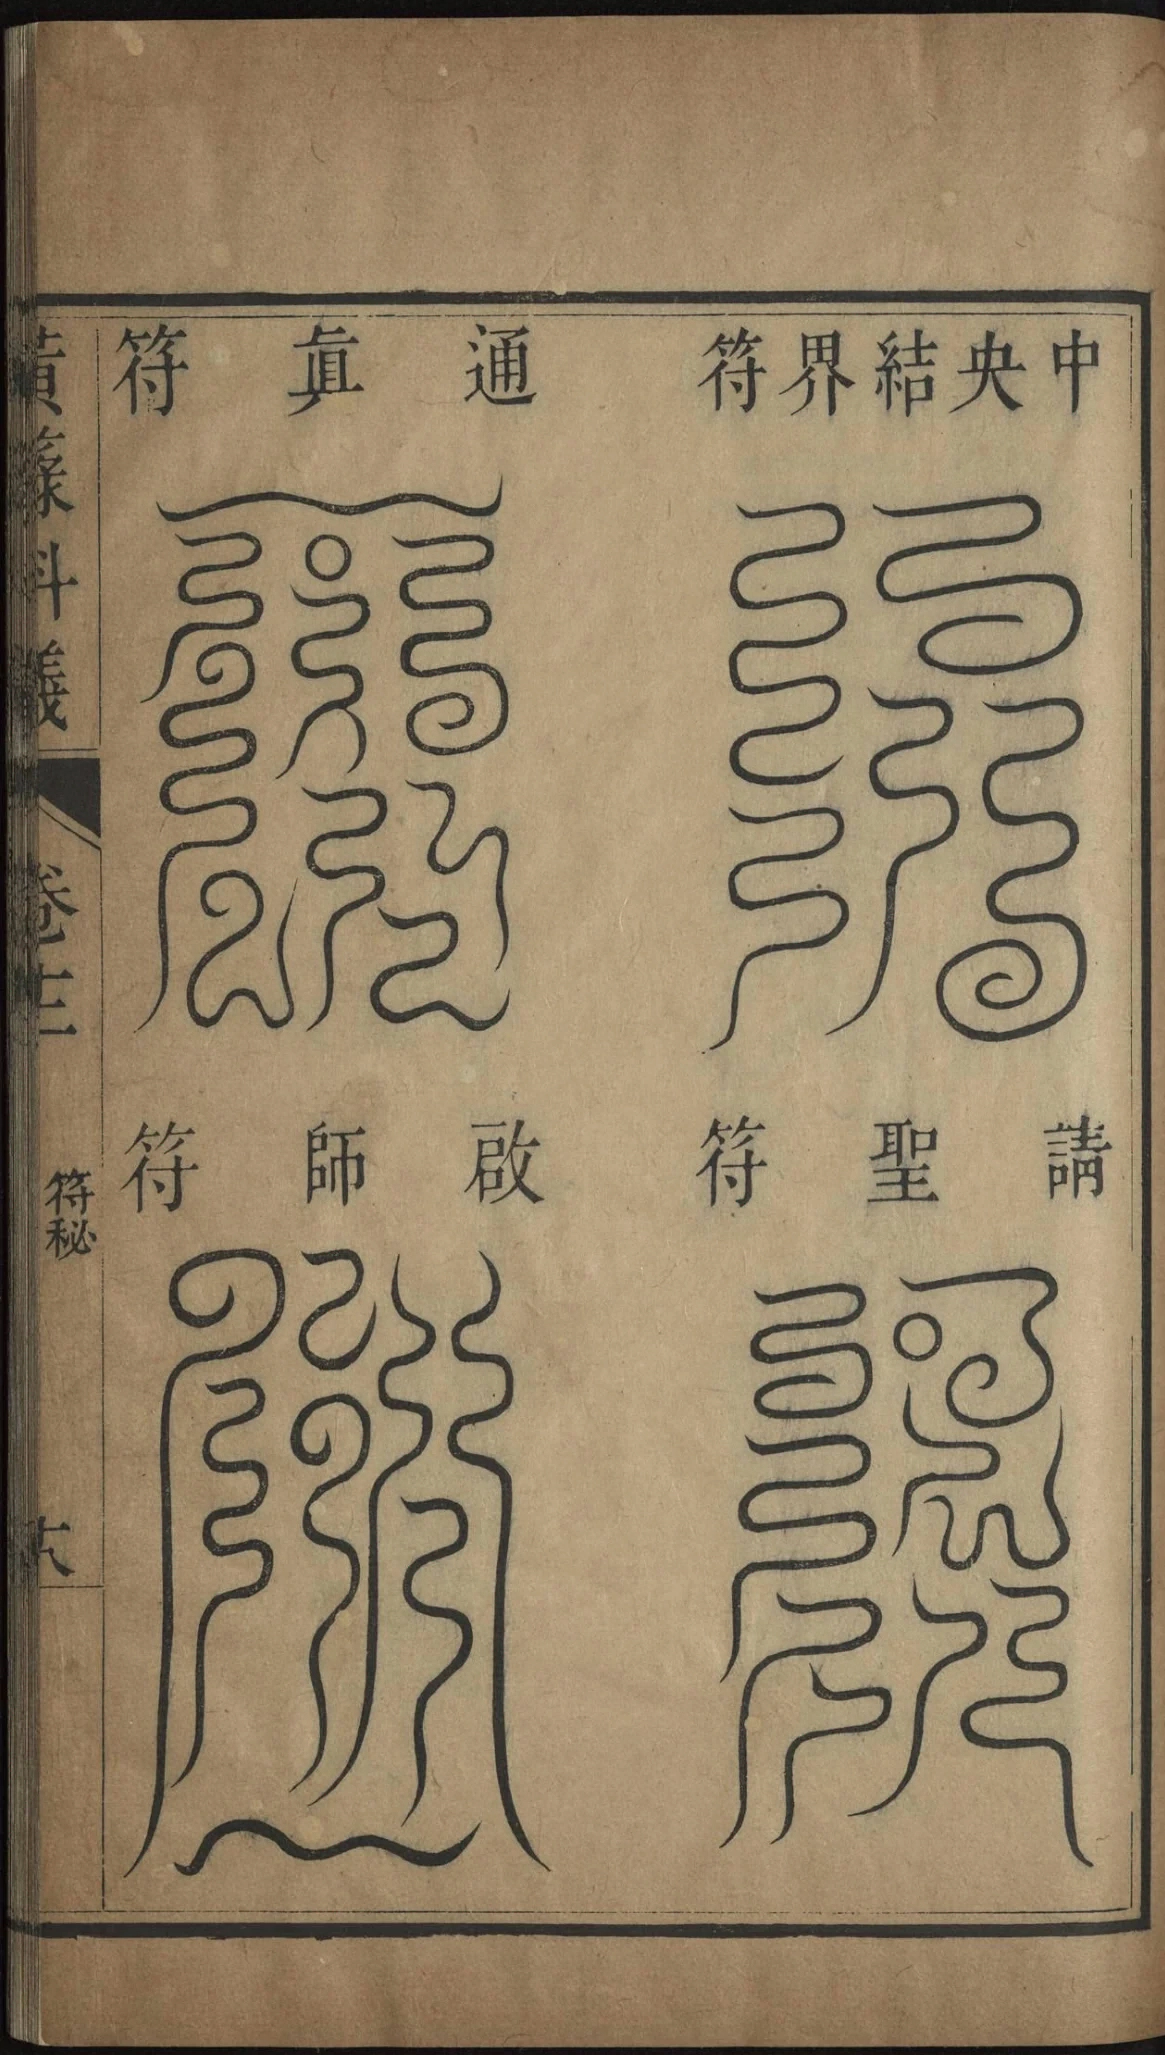 中央結界符
通眞符
請聖符
啟師符
黃籙科儀
符秘